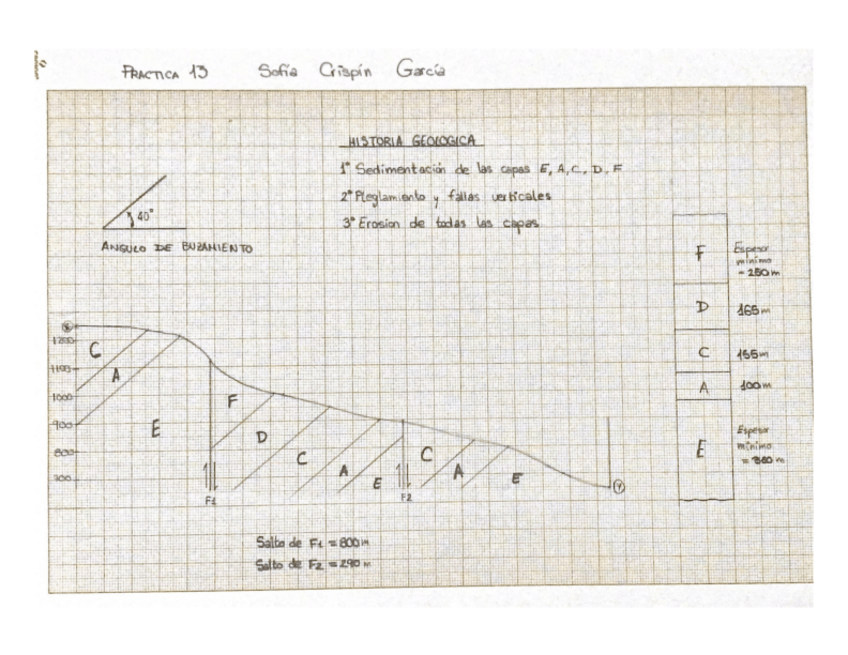 PRACTICA 13 Sofía Crispín García
HISTORIA GEOLOGICA
1º Sedimentación de las capas E, A, C, D, F
2º Pleglamiento y fallas verticales
3º Erosion de todas las capas
40°
ANGULO DE BUZAMIENTO
F Espesor minimo = 250 m
D 165 m
C 155 m
A 100 m
E Espesor minimo = 360 m
1200
1100
1000
900
800
700
C
A
E
F
D
C
A
E
C
A
E
F1
F2
Y
Salto de F1 = 800 m
Salto de F2 = 290 m